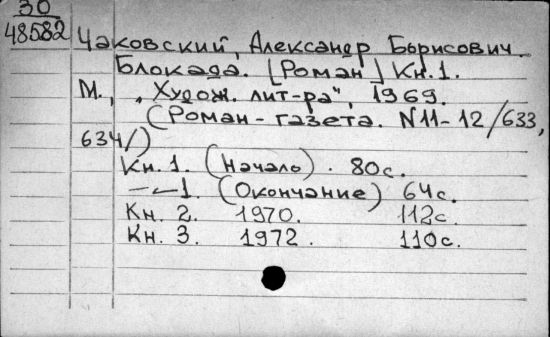 30
48582
Чаковский, Александр Борисович.
Блокада. [Роман] Кн. 1.
М., „Худож. лит-ра", 1969.
(Роман-газета. N11-12/633,
634/)
Кн. 1. (Начало). 80с.
—〃—1. (Окончание) 64с.
Кн. 2. 1970. 112с.
Кн. 3. 1972. 110с.